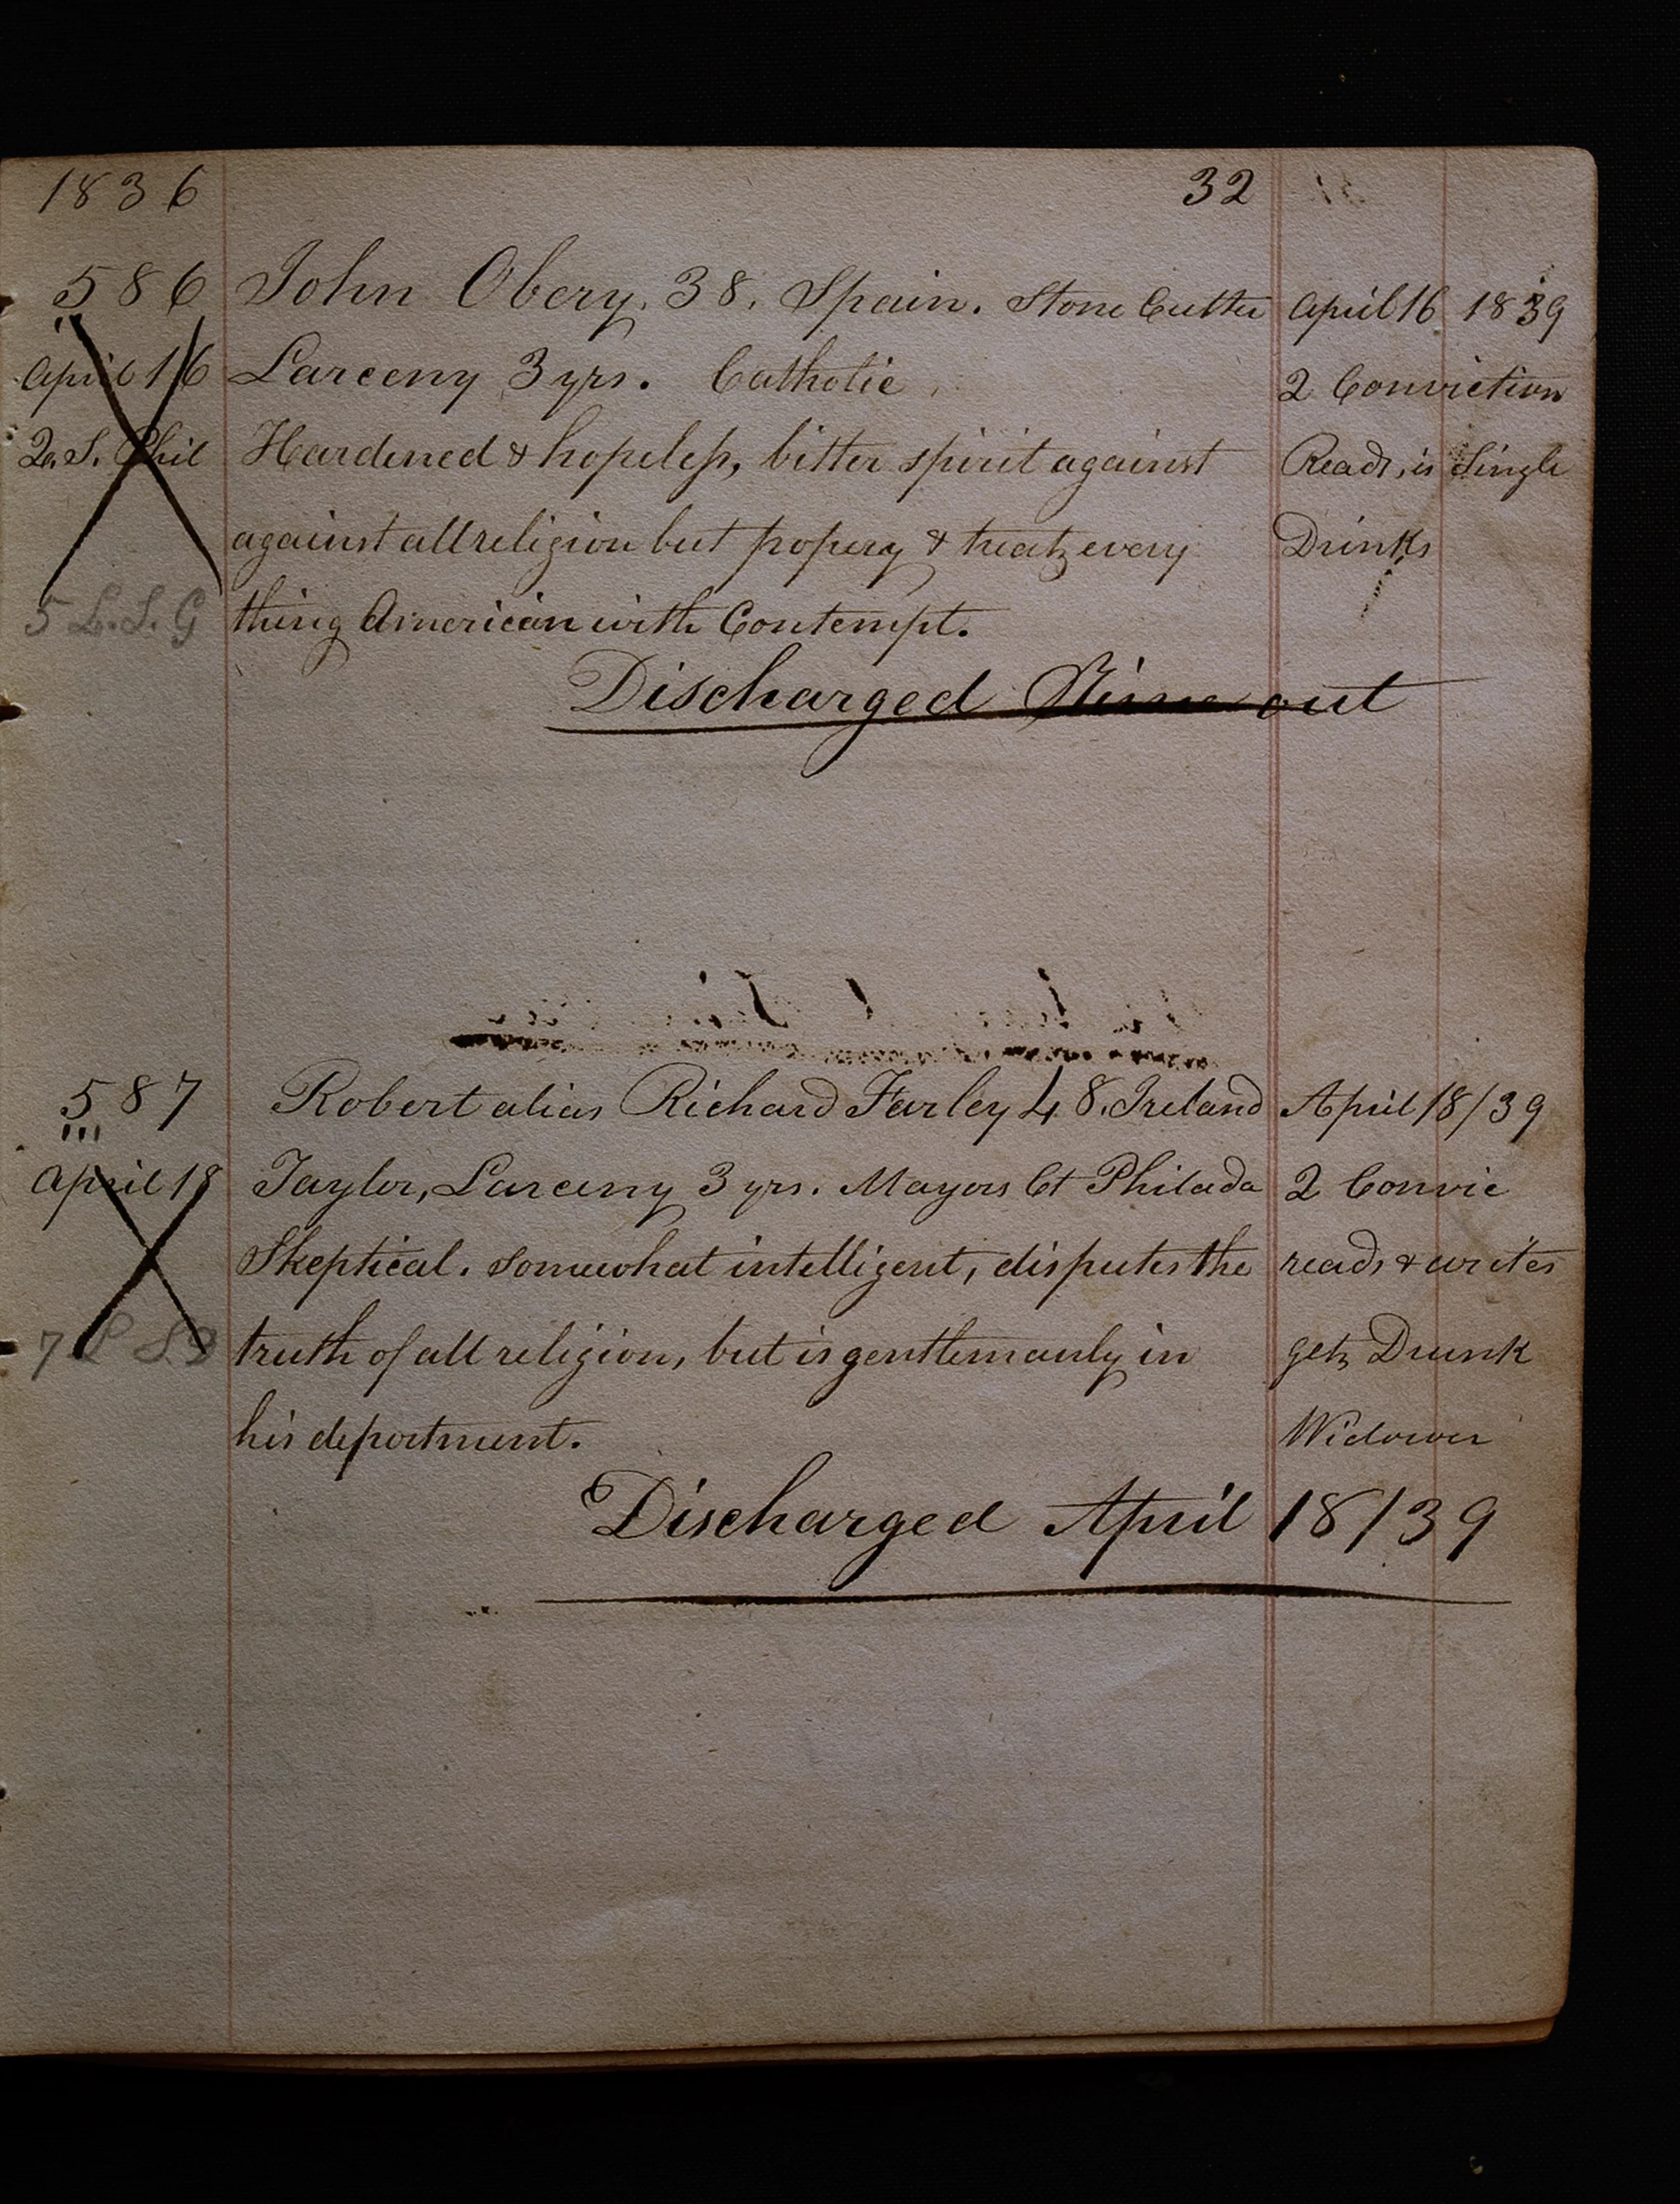 1836 32
586 John Obery. 38. Spain. Stone Cutter April 16 1839
April 16 Larceny 3 yrs. Catholic 2 Conviction
Q. S. Phil Hardened & hopeless, bitter spirit against Reads, is Single
against all religion but popery & treats every Drinks
5 L.S.G thing American with Contempt.
Discharged Time out
587 Robert alias Richard Farley 48. Ireland April 18/39
April 18 Taylor, Larceny 3 yrs. Mayors Ct Philada 2 Convic
Skeptical. Somewhat intelligent, disputes the reads & writes
7 truth of all religion, but is gentlemanly in gets Drunk
his deportment. Widower
Discharged April 18/39